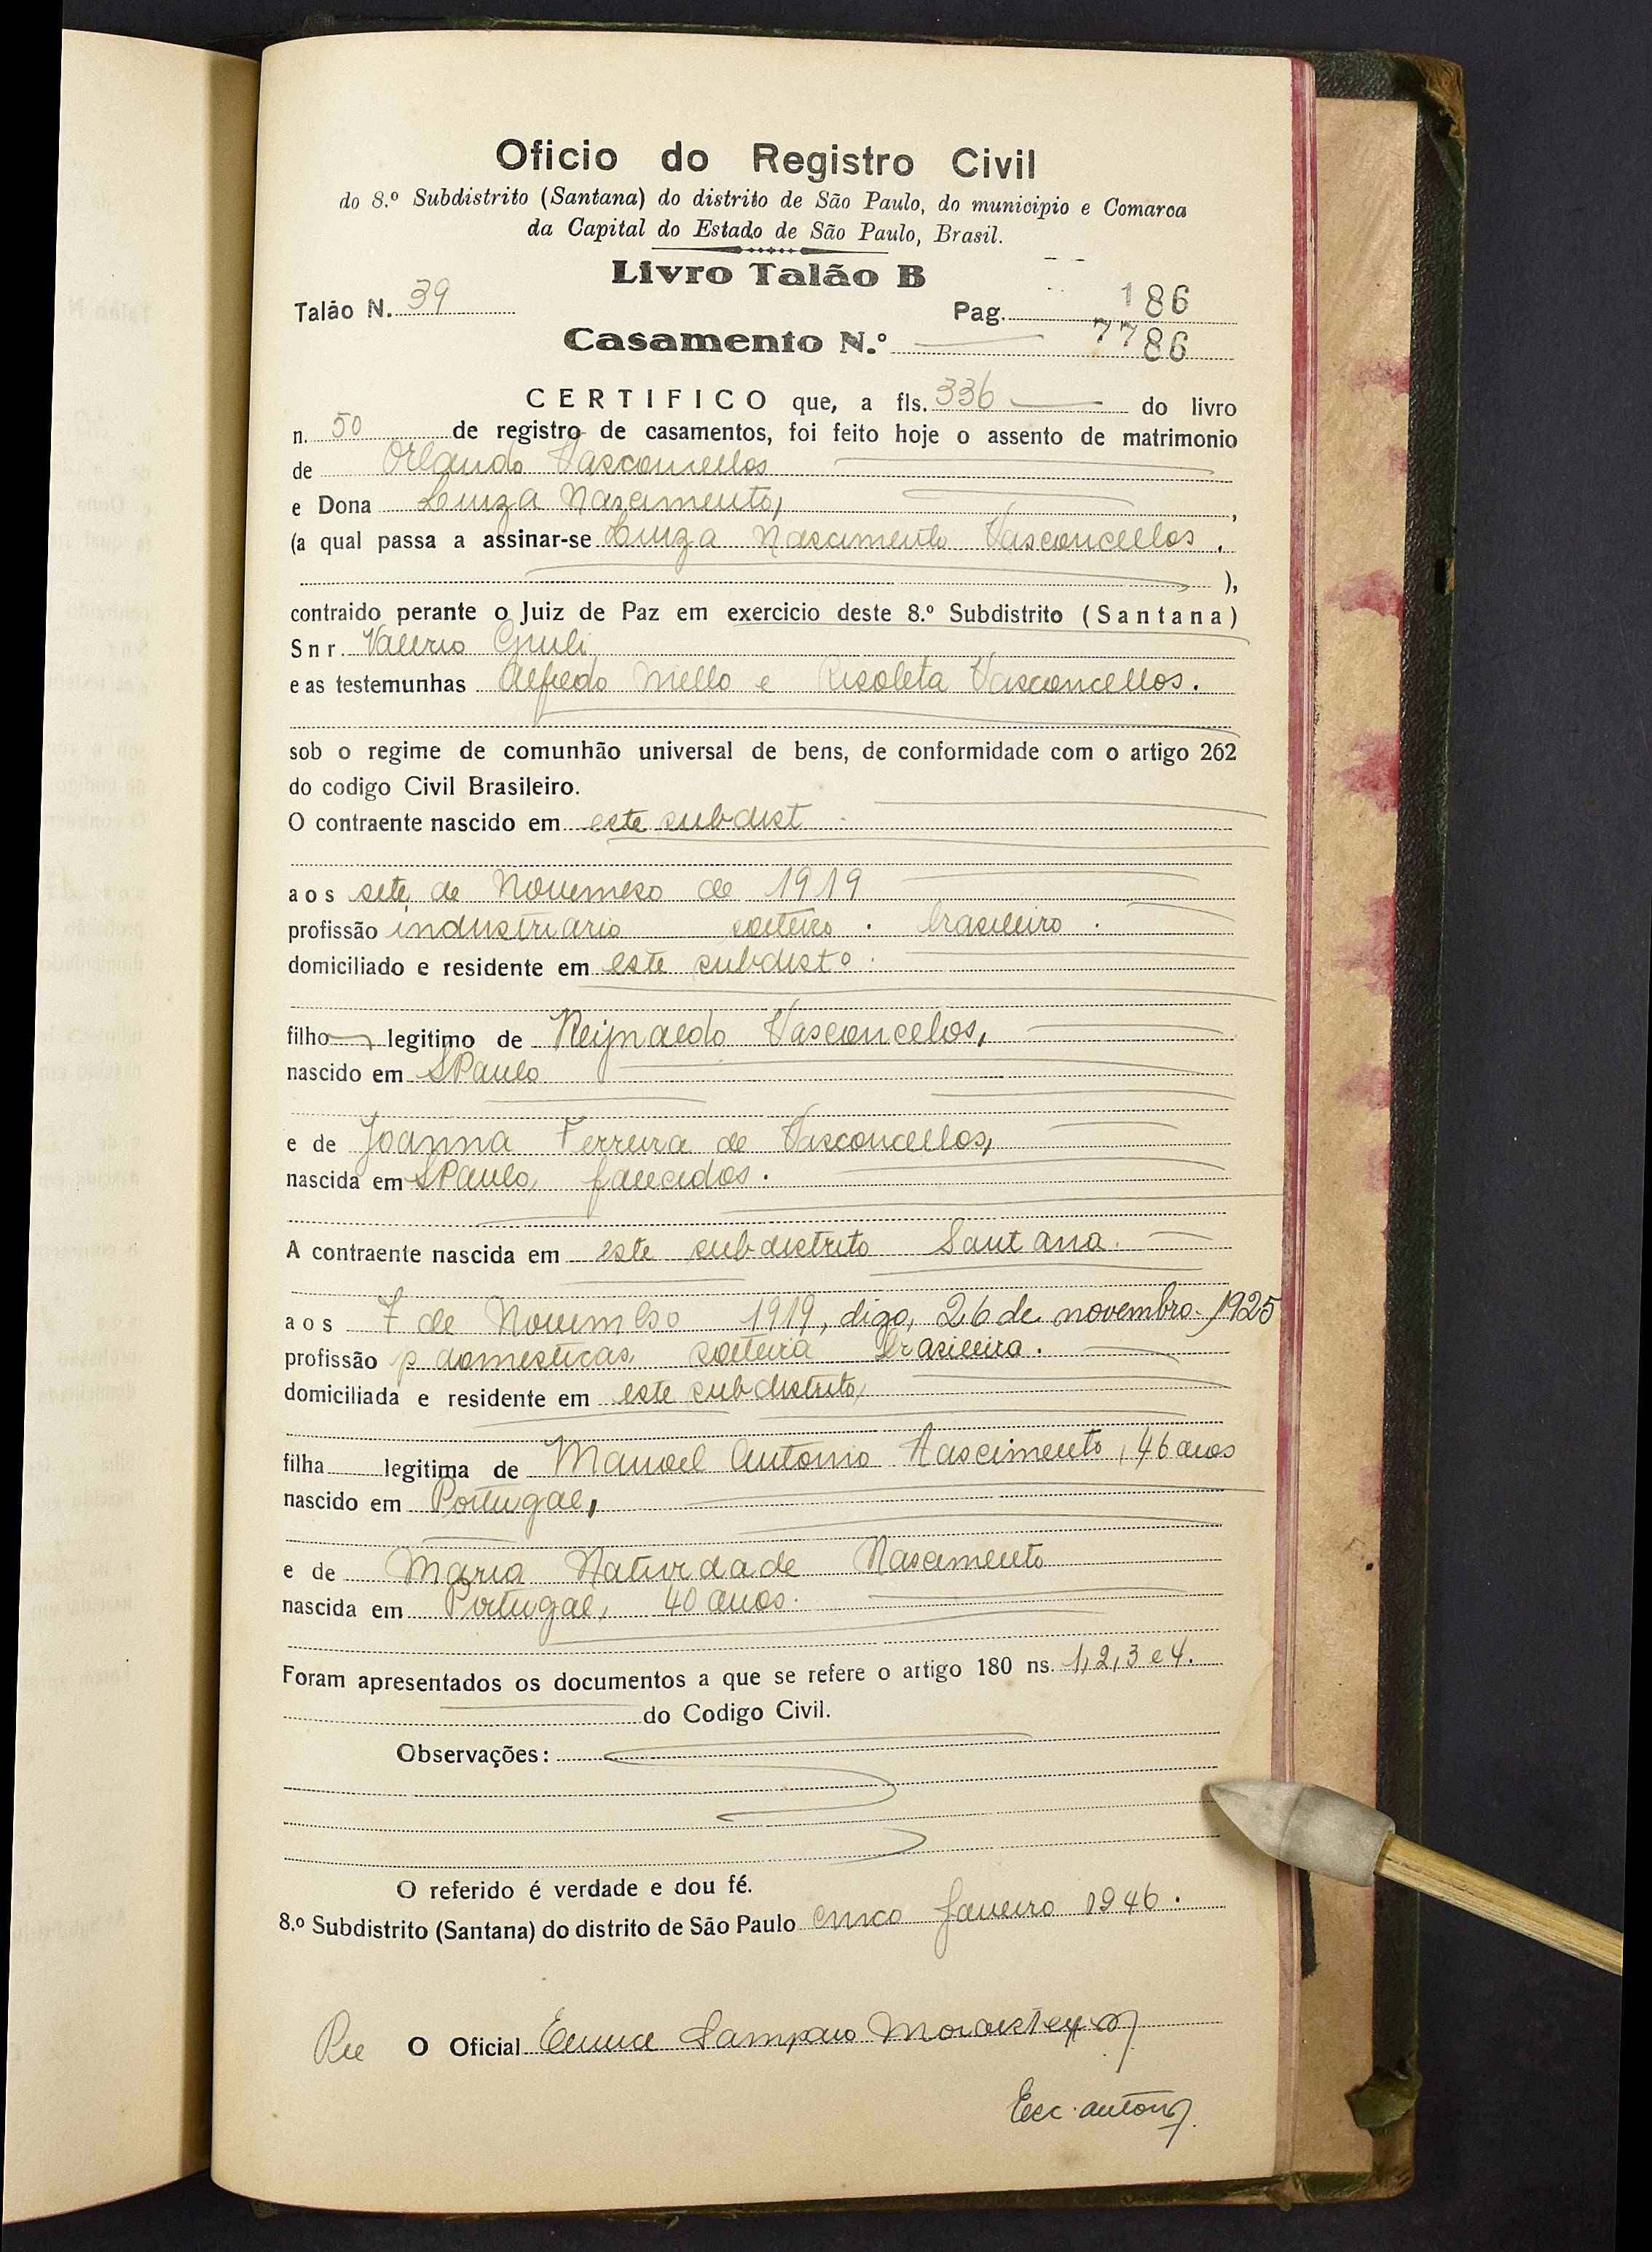 Oficio do Registro Civil
do 8.º Subdistrito (Santana) do distrito de São Paulo, do municipio e Comarca
da Capital do Estado de São Paulo, Brasil.
Livro Talão B
Talão N. 39 Pag. 186
Casamento N.º 7786
CERTIFICO que, a fls. 336 do livro
n. 50 de registro de casamentos, foi feito hoje o assento de matrimonio
de Orlando Vasconcellos
e Dona Luiza Nascimento,
(a qual passa a assinar-se Luiza Nascimento Vasconcellos.
),
contraido perante o Juiz de Paz em exercicio deste 8.º Subdistrito (Santana)
Snr. Valerio Giuli
e as testemunhas Alfredo Mello e Risoleta Vasconcellos.
sob o regime de comunhão universal de bens, de conformidade com o artigo 262
do codigo Civil Brasileiro.
O contraente nascido em este subdist
aos sete de Novembro de 1919
profissão industriario solteiro. brasileiro.
domiciliado e residente em este subdist.º
filho legitimo de Reynaldo Vasconcelos,
nascido em SPaulo
e de Joanna Ferreira de Vasconcellos,
nascida em SPaulo, falecidos.
A contraente nascida em este subdistrito Sant ana.
aos 7 de Novembro 1919, digo, 26 de novembro 1925
profissão p domesticas, solteira brasileira.
domiciliada e residente em este subdistrito,
filha legitima de Manoel Antonio Nascimento, 46 anos
nascido em Portugal,
e de Maria Natividade Nascimento
nascida em Portugal, 40 anos.
Foram apresentados os documentos a que se refere o artigo 180 ns. 1, 2, 3 e 4.
do Codigo Civil.
Observações:
O referido é verdade e dou fé.
8.º Subdistrito (Santana) do distrito de São Paulo cinco Janeiro 1946.
O Oficial Eunice Sampaio
Esc. autor